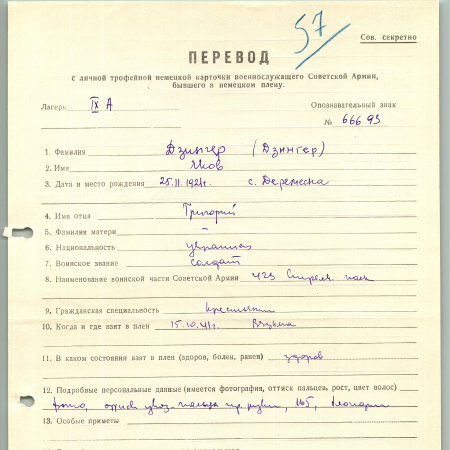 57
Сов. секретно
ПЕРЕВОД
с личной трофейной немецкой карточки военнослужащего Советской Армии,
бывшего в немецком плену.
Лагерь IX A
Опознавательный знак
№ 666 93
1. Фамилия Дзингер (Дзингер)
2. Имя Яков
3. Дата и место рождения 25.11.1921г. с.
4. Имя отца Григорий
5. Фамилия матери –
6. Национальность украинец
7. Воинское звание солдат
8. Наименование воинской части Советской Армии 423 Стрелк. полк
9. Гражданская специальность крестьянин
10. Когда и где взят в плен 15.10.41г. Вязьма
11. В каком состоянии взят в плен (здоров, болен, ранен) здоров
12. Подробные персональные данные (имеется фотография, оттиск пальцев, рост, цвет волос)
фото, оттиск пальца руки, 165, блондин
13. Особые приметы